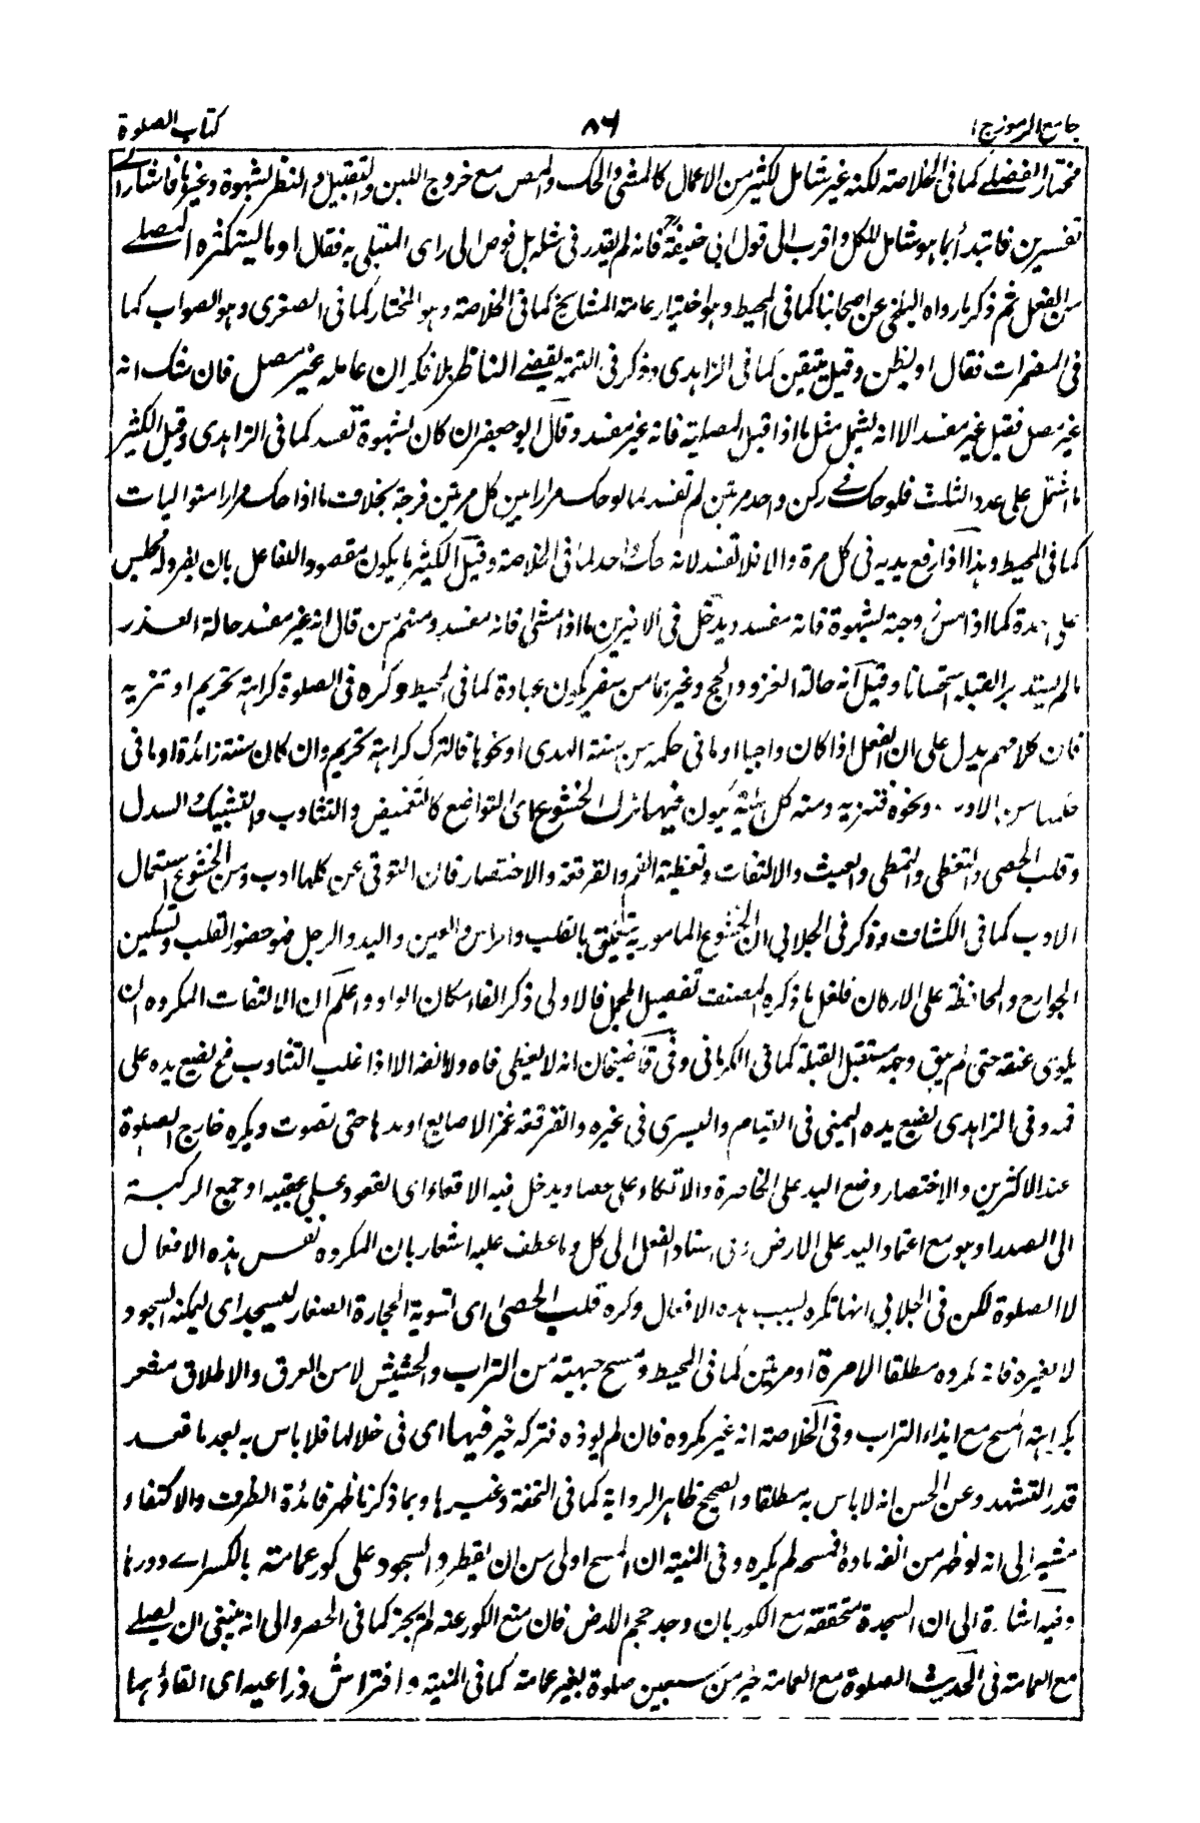 جامع الرموز ج ١
٨٦
كتاب الصلوة
مختار الفضلے كما فی الخلاصة لكنه غير شامل لكثير من الاعمال كالمشی والحك والمص مع خروج اللبن والتقبيل والنظر لشهوة وغيرها فاشار الے
تفسيرين فابتدأ بما هو شامل للكل واقرب الی قول ابی حنيفة فانه لم يقدر فی مثله بل فوض الی رای المبتلی به فقال او ما ليستكثره المصلے
من الفعل ثم ذكر ما رواه البلخی عن اصحابنا كما فی المحيط وهو اختيار عامة المشايخ كما فی الخلاصة وهو المختار كما فی الصغری وهو الصواب كما
فی المضمرات فقال او يظن وقيل يتيقن كما فی الزاهدی وذكر فی التتمة يقضے الناظر بلا فكر ان عامله غير مصل فان شك انه
غير مصل فقيل غير مفسد الا انه يشمل مثل ما اذا قبل المصلية فانه غير مفسد وقال ابو جعفر ان كان لشهوة تفسد كما فی الزاهدی وقيل الكثير
ما اشتمل علی عدد الثلث فلو حك فے ركن واحد مرتين لم تفسد كما لو حك مرارا بين كل مرتين فرجة بخلاف ما اذا حك مرارا متواليات
كما فی المحيط وهذا اذا رفع يديه فی كل مرة والا فلا تفسد لانه حك واحد كما فی الخلاصة وقيل الكثير ما يكون مقصود اللفاعل بان يفرد له مجلس
علی حدة كما اذا مس زوجته لشهوة فانه مفسد ويدخل فی الاخيرين ما اذا مشی فانه مفسد ومنهم من قال انه غير مفسد حالة العذر
ما لم يستدبر القبلة استحسانا وقيل انه حالة الغزو والحج وغيرهما من سفر يكون عبادة كما فی المحيط وكره فی الصلوة كراهة تحريم او تنزيه
فان كلامهم يدل علی ان الفعل اذا كان واجبا او ما فی حكمه من سنة الهدی او نحوها فالترك كراهة تحريم وان كان سنة زائدة او ما فی
حكمها من الادب ونحوه فتنزيه ومنه كل هيئة يكون فيها ترك الخشوع ای التواضع كالتغميض والتثاوب والتشبيك السدل
وقلب الحصی والتغطی والتمطی والعبث والالتفات وتغطية الفم والفرقعة والاختصار فان التوقی عن كلها ادب ومن الخشوع استعمال
الادب كما فی الكشاف وذكر فی الجلابی ان الخشوع المامور به يتعلق بالقلب والراس والعين واليد والرجل فهو حضور القلب وتسكين
الجوارح والمحافظة علی الاركان فلعل ما ذكره المصنف تفصيل المجمل فالاولی ذكر الفاء مكان الواو واعلم ان الالتفات المكروه ان
يلوی عنقه حتی لم يبق وجهه مستقبل القبلة كما فی الكرمانی وفی قاضيخان انه لا يغطی فاه ولا انفه الا اذا غلب التثاوب فح يضع يده علی
فمه وفی الزاهدی يضع يده اليمنی فی القيام واليسری فی غيره والفرقعة غمز الاصابع او مدها حتی تصوت ويكره خارج الصلوة
عند الاكثرين والاختصار وضع اليد علی الخاصرة والاتكاء علی عصا ويدخل فيه الاقعاء ای القعود علی عقبيه او جميع الركبة
الی الصدر او هو مع اعتماد اليد علی الارض وفی اسناد الفعل الی كل وما عطف عليه اشعار بان المكروه نفس هذه الافعال
لا الصلوة لكن فی الجلابی انها تكره بسبب هذه الافعال وكره قلب الحصی ای تسوية الحجارة الصغار ليسجد ای ليمكنه السجود
لا لغيره فانه مكروه مطلقا الا مرة او مرتين كما فی المحيط ومسح جبهته من التراب والحشيش لا من العرق والاطلاق مشعر
بكراهة المسح مع ايذاء التراب وفی الخلاصة انه غير مكروه فان لم يوذه فتركه خير فيها ای فی خلالها فلا باس به بعد ما قعد
قدر التشهد وعن الحسن انه لا باس به مطلقا والصحيح ظاهر الرواية كما فی التحفة وغيرها وبما ذكرنا ظهر فائدة الظرف والاكتفاء
مشير الی انه لو ظهر من انفه مادة فمسحه لم يكره وفی المنية ان المسح اولی من ان يقطر والسجود علی كور عمامته بالكسر اے دورها
وفيه اشارة الی ان السجدة متحققة مع الكور بان وجد حجم الارض فان منع الكور عنه لم تجز كما فی الحصر والی انه ينبغی ان يصلے
مع العمامة فی الحديث الصلوة مع العمامة خير من سبعين صلوة بغير عمامة كما فی المنية وافتراش ذراعيه ای القاؤهما